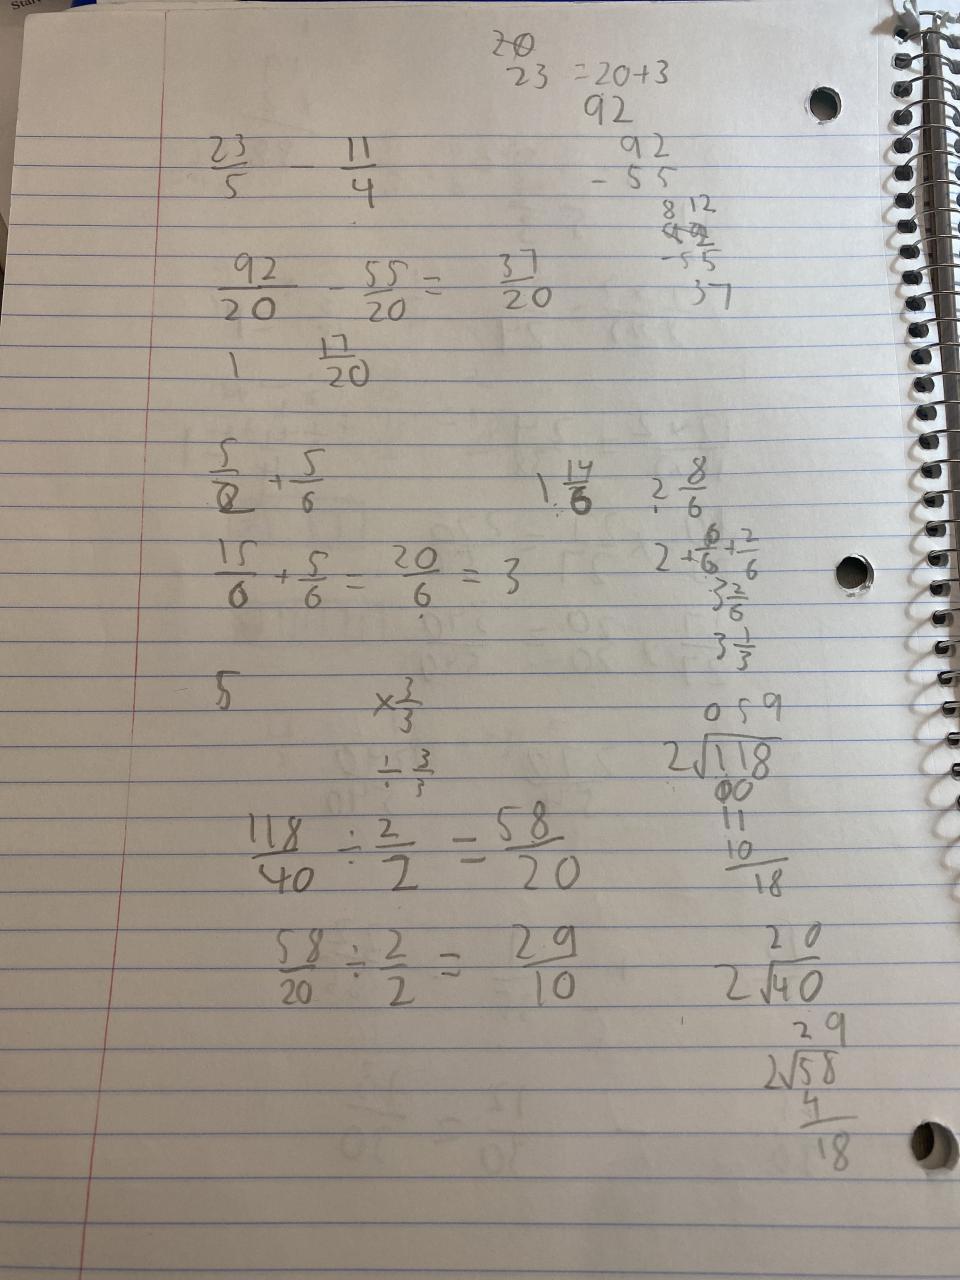 Star
20
23 = 20+3
92
23/5 - 11/4
92
- 55
8 12
92
-55
37
92/20 - 55/20 = 37/20
1 17/20
5/2 + 5/6
1 14/6 2 8/6
15/6 + 5/6 = 20/6 = 3
2 + 6/6 + 2/6
3 2/6
3 1/3
5
× 3/3
÷ 3/3
059
2√118
00
11
10
18
118/40 ÷ 2/2 = 58/20
58/20 ÷ 2/2 = 29/10
20
2√40
29
2√58
4
18